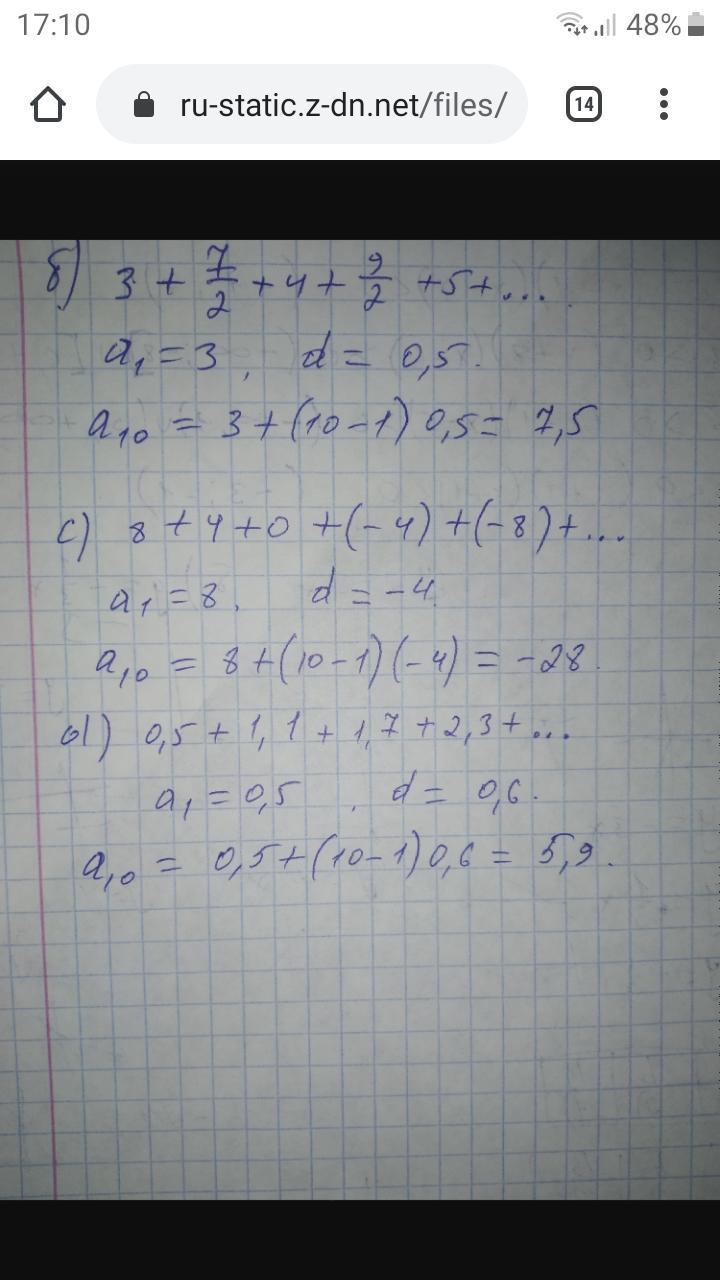 17:10 48%
ru-static.z-dn.net/files/ 14
б) 3 + 7/2 + 4 + 9/2 + 5 + ...
a₁ = 3, d = 0,5.
a₁₀ = 3 + (10 - 1) 0,5 = 7,5
c) 8 + 4 + 0 + (-4) + (-8) + ...
a₁ = 8, d = -4
a₁₀ = 8 + (10 - 1) (-4) = -28.
d) 0,5 + 1,1 + 1,7 + 2,3 + ...
a₁ = 0,5, d = 0,6.
a₁₀ = 0,5 + (10 - 1) 0,6 = 5,9.